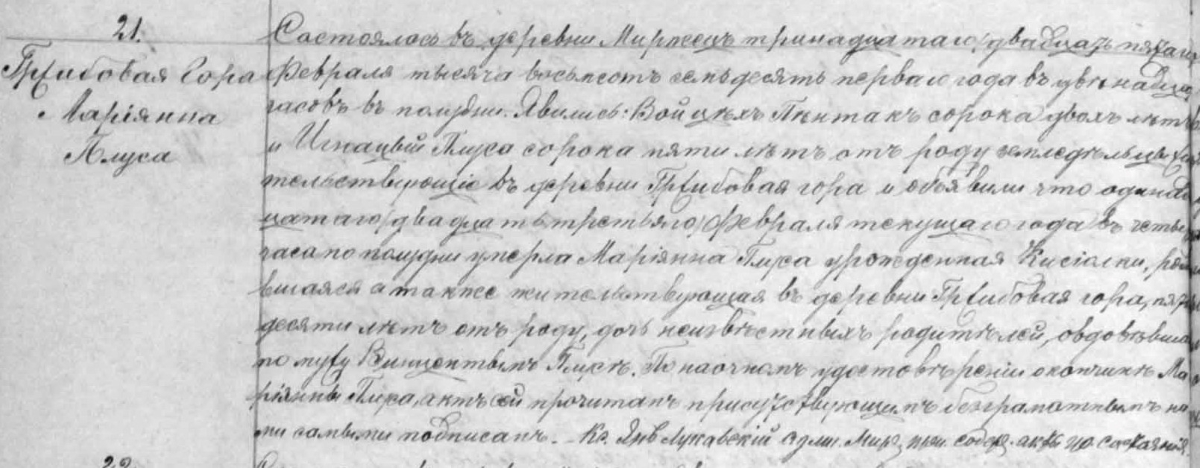 21.
Гржибовая Гора
Маріянна
Плуса
Состоялось въ деревни Миржецъ тринадцатаго /двадцать пятаго/
Февраля тысяча восьмсотъ семьдесятъ перваго года въ двенадца
часовъ въ полудни. Явились: Войцехъ Пентакъ сорока двохъ лѣтъ
и Игнацый Плуса сорока пяти лѣтъ отъ роду земледѣльцы жи
тельствующіе въ деревни Гржибовая гора и объявили что одинад
цатаго /двадцать третьяго/ Февраля текущаго года въ четыре
часа по полудни умерла Маріянна Плуса урожденная Кисіолки, роди
вшаяся а также жительствующая въ деревни Гржибовая гора, пять
десяти лѣтъ отъ роду, дочь неизвѣстныхъ родителей, овдовѣвшая
по мужу Винцентымъ Плусѣ. По наочномъ удостовѣреніи о кончинѣ Ма
ріянны Плуса, актъ сей прочитанъ присутствующимъ безграмотнымъ на
ми самыми подписанъ. Кс. Янъ Лукавскій Адми. Мирж,
22.